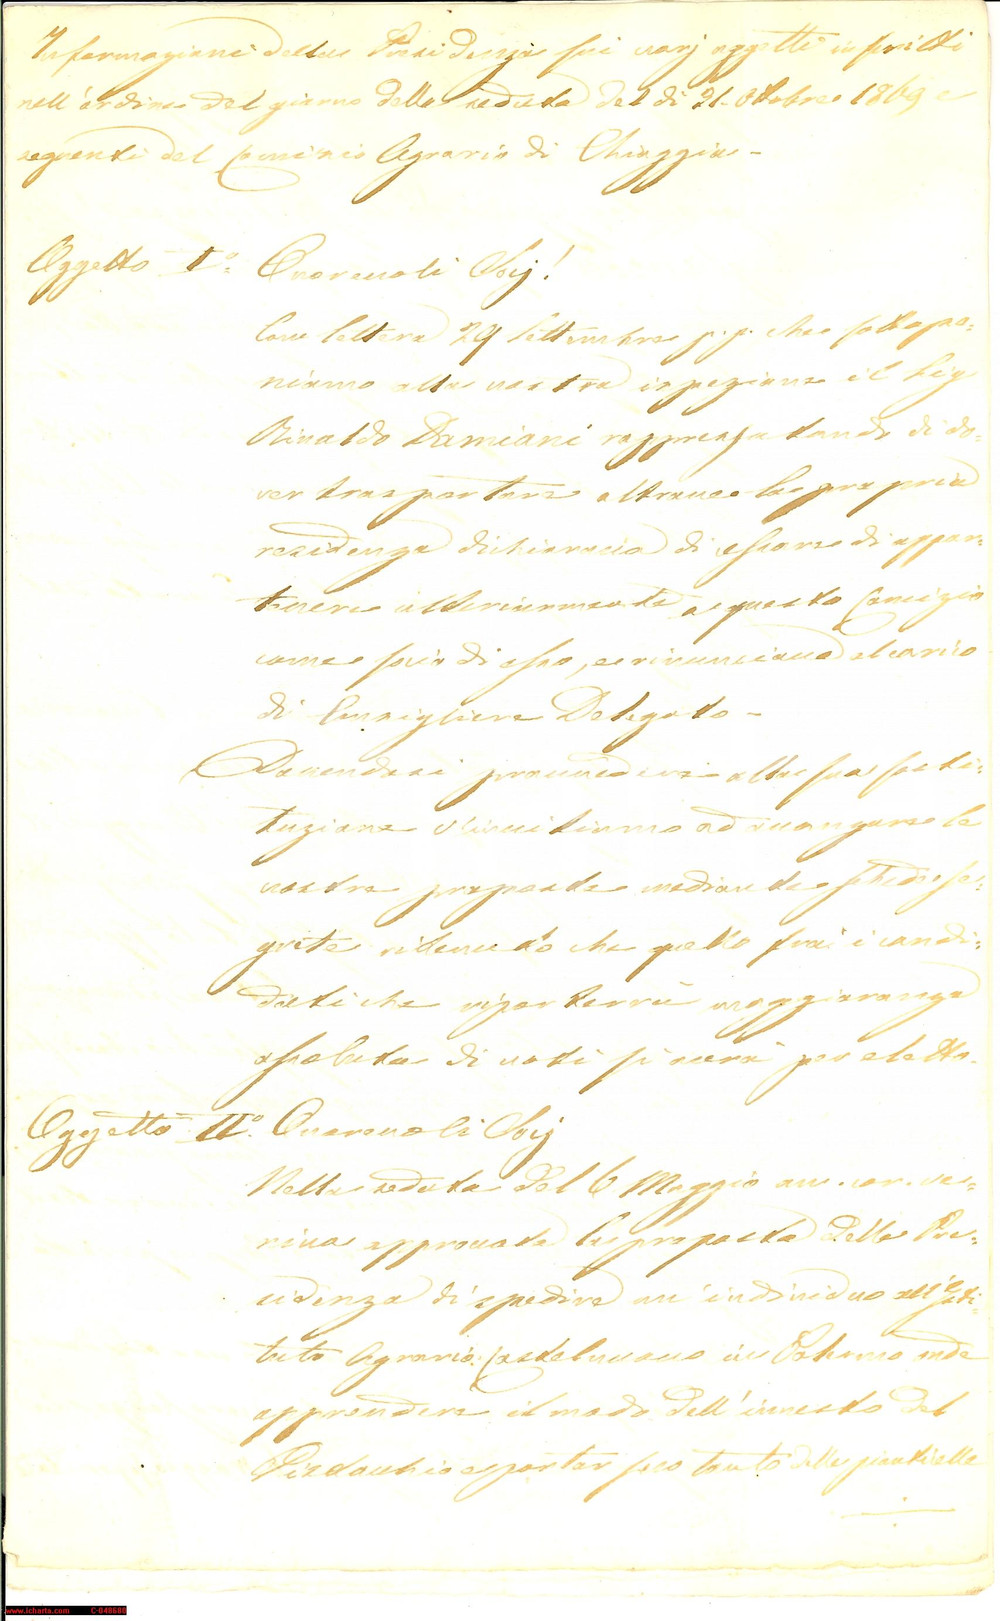 Informazioni della Presidenza sui varj oggetti inscritti
nell'ordine del giorno della seduta del dì 21 Ottobre 1869 e
seguenti del Comizio Agrario di Chioggia -
Oggetto I.° Onorevoli Socj!
Con lettera 29 Settembre p.p. che sottopo=
niamo alla vostra ispezione il Sig.
Rinaldo Damiani rappresentando di do=
ver trasportare altrove la propria
residenza dichiarava di cessare di appar=
tenere ulteriormente a questo Comizio
come socio di esso, e rinunciava al carico
di Consigliere Delegato -
Dovendosi provvedere alla sua sosti=
tuzione V'invitiamo ad avanzare le
vostre proposte mediante schede se=
grete ritenuto che quello frai i candi=
dati che riporterrà maggioranza
assoluta di voti si avrà per eletto.
Oggetto II.° Onorevoli Socj
Nella seduta del 6 Maggio an. cor. ve=
niva approvata la proposta della Pre=
sidenza di spedire un'individuo all'Isti=
tuto Agrario Castelnuovo in Palermo onde
apprendere il modo dell'innesto del
Pistacchio e portar seco tanto delle pianticelle
www.icharta.com C-040680